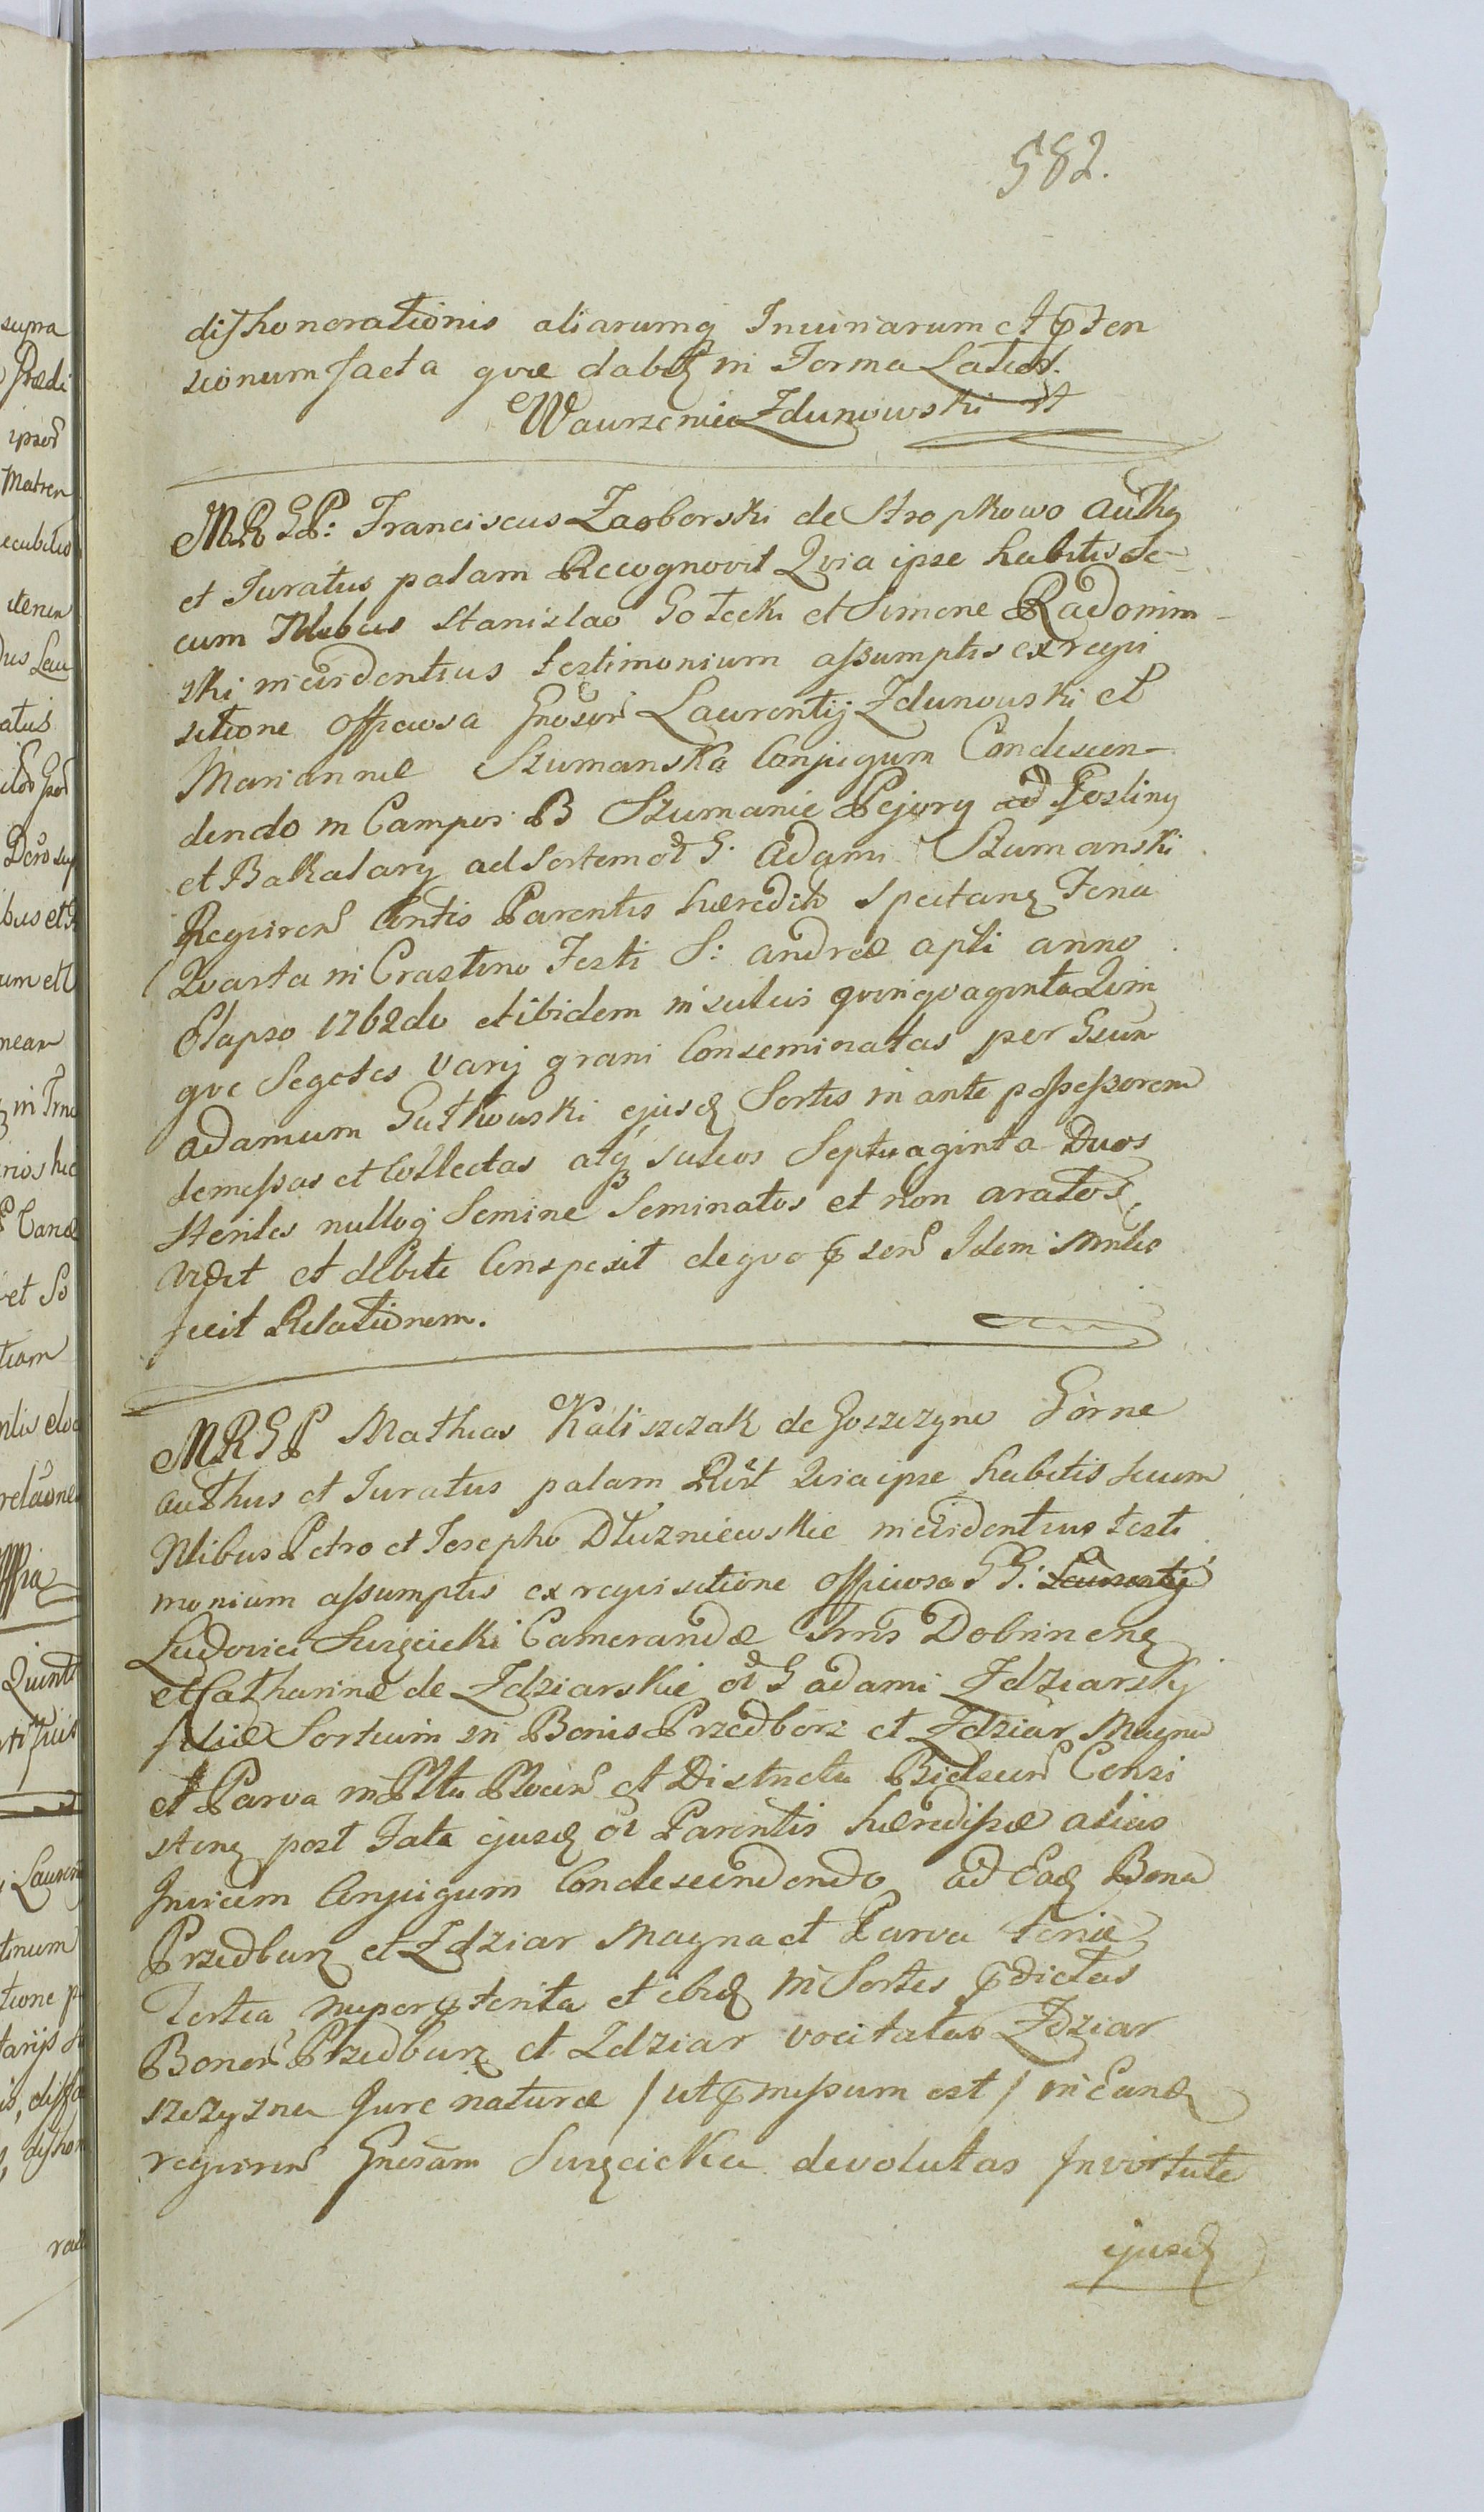 582.
disshonorationis aliarumq Iniuriarum et p̄ten
sionum facta quæ dabit in Forma Latiori.
Wawrzeniec Zdunowski
MRGP: Franciscus Zaborski de Stropkowo auth9
et Juratus palam Recognovit Qvia ipse habitis Se-
cum Nlibus Stanislao Gotecki et Simone Radomin-
ski incidentius testimonium assumptis ex reqvi
sitione officiosa Gnosor Laurentij Zdunowski et
Mariannæ Szumanska Conjugum Condescen-
dendo in Campos B Szumanie Pejory ad Postiny
et Bakalary ad Sortem ol G. Adami Szumanski
Reqviren Cntis Parentis hæredit Spectan Feria
Qvarta in Crastino Festi S: andreæ apli anno
Elapso 1762do et ibidem in sulcis qvinqvaginta Qvin
qve Segetes varij grani Conseminatas per Gsun
adamum Gutkowski ejusd Sortis in ante possessorem
demessas et Collectas atq sulcos Septuaginta Duos
Steriles nulloq Semine Seminatos et non aratos
vidit et debite Conspexit de qvo p sen Idem Mntlis
fecit Relationem.
MRGP Mathias Kaliszczak de Goszczyno Górne
authus et Juratus palam Rit Qvia ipse habitis secum
Nlibus Petro et Josepho Dłuzniewskie incidentius testi
monium assumptis ex reqvisitione officiosa GG: Laurentij
Ludovici Swięcicki Camerandæ Trris Dobrinen
et Catharinæ de Zdziarskie ol G adami Zdziarskj
filiæ Sortium in Bonis Przedborz et Zdziar Magna
et Parva in Pltu Plocen et Districtu Bielscen Consi
sten post Fata ejusd ol Parentis hæredissæ alias
Invicem Conjugum Condescendendo ad Ead Bona
Przedburz et Zdziar Magna et Parva Feria
Tertia nuper p̄terita et ibid in Sortes p̄dictas
Bonor Przedburz et Zdziar vocitatas Zdziar
szczyzna Jure naturæ / ut p̄missum est / in Eand
reqviren Gnosam Swięcicka devolutas In virtute
ejusd